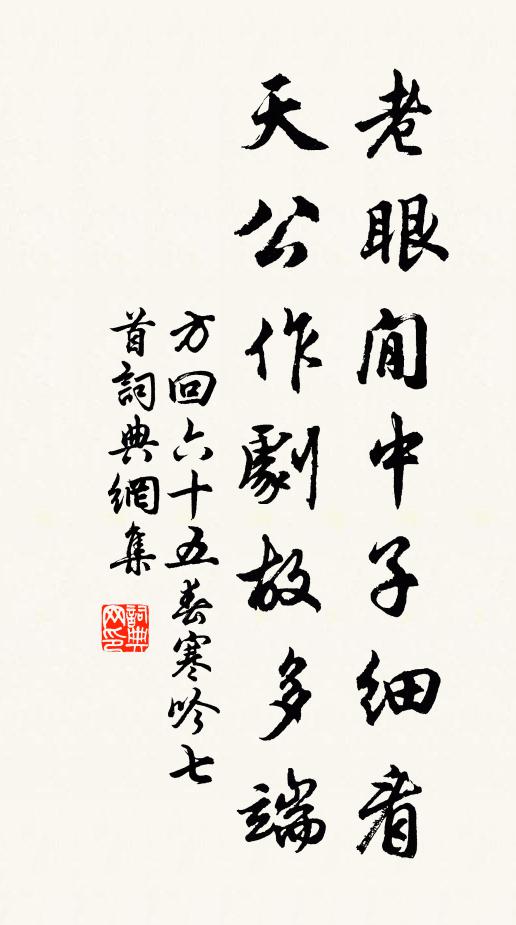 老眼閒中子細看
天公作劇故多端
方回六十五春寒吟七
首詞典網集
詞典
网印